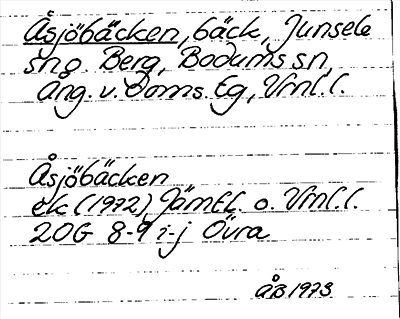 Åsjöbäcken, bäck, Junsele
sng. Berg, Bodums sn,
Ång. v. Doms. Eg, Vrnl. l.
Åsjöbäcken
ek (1972), Jämtl. o. Vrnl. l.
20G 8-9 i-j Övra
ÅB 1973